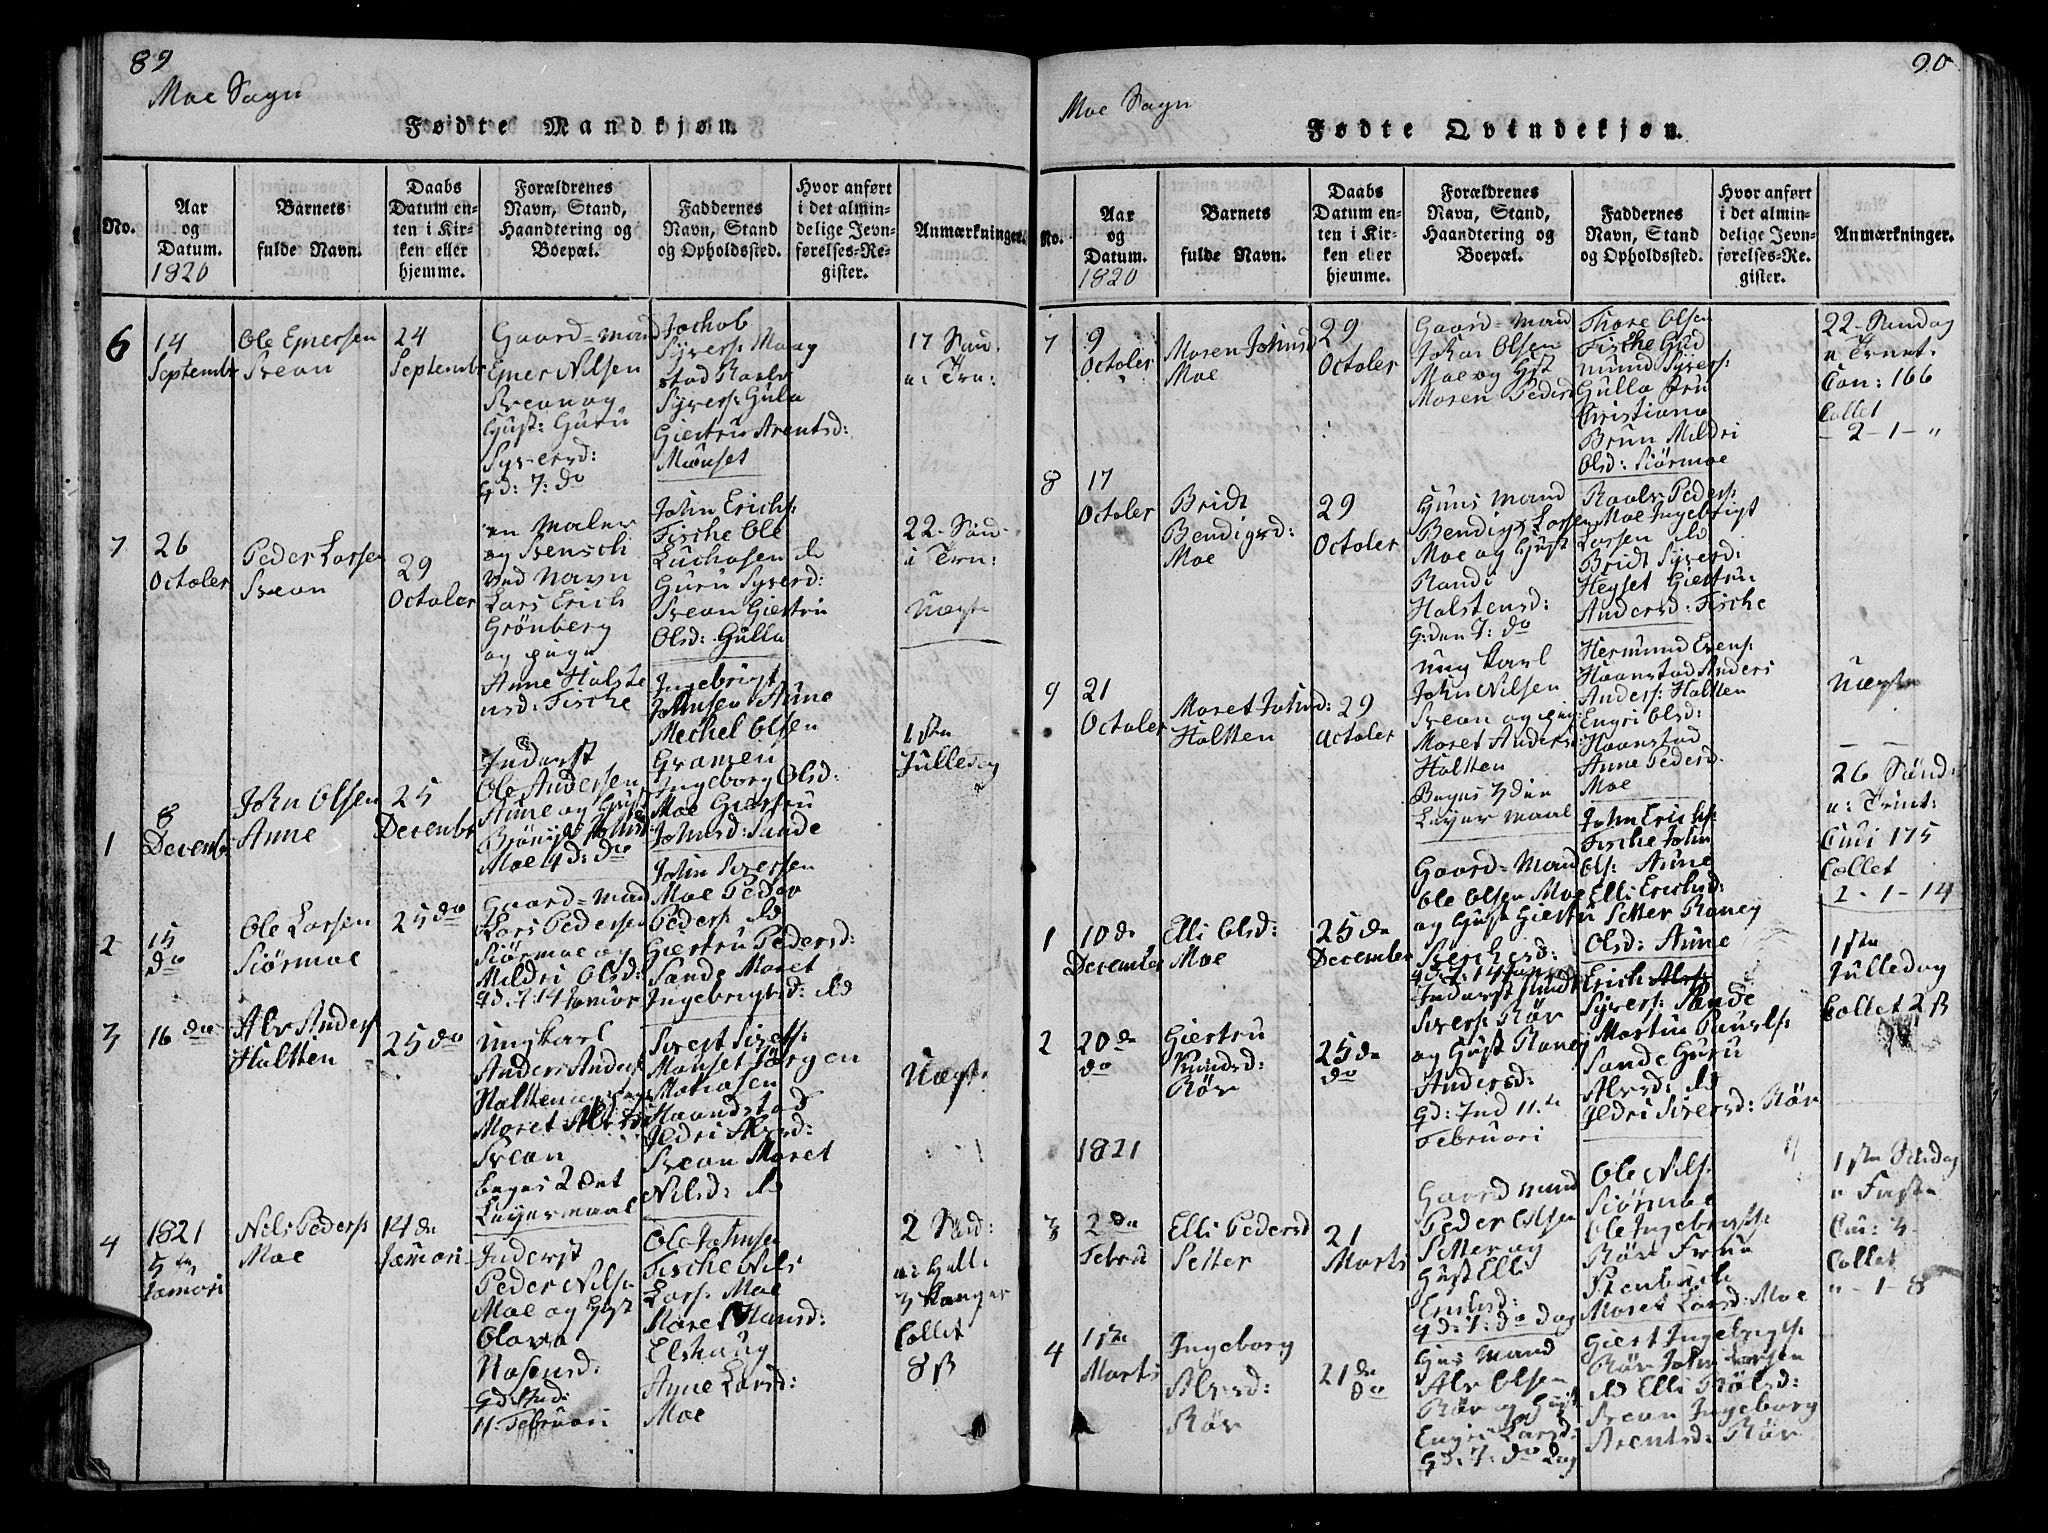 89
Moe Sogn
Fødte Mandkjøn.
No.
Aar
og
Datum.
1820
Barnets
fulde Navn.
Daabs
Datum en-
ten i Kir-
ken eller
hjemme.
Forældrenes
Navn, Stand,
Haandtering og
Boepæl.
Faddernes
Navn, Stand
og Opholdssted.
Hvor anført
i det almin-
delige Jevn-
førelses-Re-
gister.
Anmærkninger.
6
14
Septembr
Ole
Svean
24
Septembr
Gaard-mand
Nilsen
Svean og
Hust: Guru
Syversd:
gd: 7: do
Jachob
Syvers: Moog
stad
Syvers: Gulla
Giertru Arentsd:
Mønset
17 Sønd.
e: Trn:
7
26
October
Peder Larsen
Svean
29
October
en Maler
og Svensch
ved Navn
Lars Erich
Grönberg
og pige
Anne Halste
nsd: Fische
John Erichs:
Fische Ole
Luchasen ibd
Guru Syversd:
Svean Giertru
Olsd: Gulla
22 Sønd.
i Trn:
Uægte
1
8
Decembr
John Olsen
Aune
25
Decembr
Inderst
Ole Andersen
Aune og Hust
Moe gd: do
Ingebrigt
Johnsen Aune
Mechel Olsen
Gramen
Ingeborg Olsd:
Moe Giertru
Johnsd: Sande
1ste
Julledag
2
15
do
Ole Larsen
Siørmoe
25 do
Gaard-mand
Lars Pedersen
Siørmoe og
Mildri Olsd:
gd. 7: 14 Janūar
John Sversen
Moe Peder
Peders: ibd
Giertru Pedersd:
Sande Moret
Ingebrigtsd: ibd
3
16 de
Alv Anders:
Haltten
25 do
Ungkarl
Anders Anders:
Haltten og pige
Moret Alvsd:
Svean
begges 2det
Leyermaal
Sivert Sivers:
Monset Jørgen
Haandstad
Jldri Alvsd:
Svean Moret
Nilsd: ibd
Uægte
4
1821
5te
Janūari
Nils Peders:
Moe
14 de
Janūari
Inderst
Peder Nils:
Moe og Hust
Olava
gd: Ind:
11. Februari
Ole Johnsen
Fische Nils
Lars: Moe
Moret Hansd:
Elshaug
Anne Larsd:
Moe
2 Sønd:
e: Hell:
3 Konger
Collet
8 ß
90
Moe Sogn
Fødte Qvindekjøn.
No.
Aar
og
Datum.
1820
Barnets
fulde Navn.
Daabs
Datum en-
ten i Kir-
ken eller
hjemme.
Forældrenes
Navn, Stand,
Haandtering og
Boepæl.
Faddernes
Navn, Stand
og Opholdssted.
Hvor anført
i det almin-
delige Jevn-
førelses-Re-
gister.
Anmærkninger.
7
9
October
Maren Johnsd
Moe
29
October
Gaard-mand
Johan Olsen
Moe og Hst
Maren Pedersd
Thore Olsen
Fische Gud
mund Syvers:
Gulla Fru
Christiana
Brun Mildri
Olsd: Siørmoe
22 Søndag
e Trnet:
Con: 166
Collet
- 2 - 1 - "
8
17
October
Bridt
Bendigsd:
Moe
29
October
Huus mand
Bendigt Larsen
Moe og Hust
Randi
Halstensd:
G: den 7: do
Peders:
Moe Ingebrigt
Larsen ibd
Bridt Syversd:
Heyset Giertru
Andersd: Fische
9
21
October
Moret Johnsd:
Haltten
29
October
Ung karl
John Nilsen
Svean og pige
Moret Andersd:
Haltten
Begges 3die
Leyermaal
Hermund Evens:
Haanstad Anders
Anders: Haltten
Engri Olsd:
Haanstad
Anne Pedersd.
Moe
Uægte
26 Sønd:
e: Trint:
175
Collet
2 - 1 - 14
1
10 de
December
Elli Olsd:
Moe
25 de
December
Gaard-Mand
Ole Olsen Moe
og Hust Giertru
gd: 7: 14 Janū
John Erichs:
Fische John
Ols: Aune
Elli Erichsd:
Setter Raney
Olsd: Aune
1ste
Julledag
Collet 2 ß
2
20 de
do
Giertru
Knudsd:
Rôv
25 de
do
Inderst Knudt
Sivers: Rôv
og Hust Raney
Andersd:
gd: Ind 11.te
Februari
Erich
Syvers: Sande
Martin Pauels:
Sande Guru
Alvsd: ibd
Jldri Siversd: Rôv
1821
3
2 de
Febru
Elli Pedersd
Setter
21
Marts
Gaard mand
Peder Olsen
Setter og
Hust Elli
gd: 7: do dag
Ole Nils:
Siørmoe
Ole Ingebrigts:
Rôv Frue
Steenbuch
Moret Larsd: Moe
1ste Søndag
i Faste
Collet
" - 1 - 8
4
1ste
Marts
Ingeborg
Alvsd:
Rôv
21 de
do
Huus Mand
Alv Olsen
Rôv og Hust
Engri Larsd:
gd: 7: do dag
Giert Ingebrigts:
Rôv John
ibd Elli
Svean Ingeborg
Arentsd: Rôv